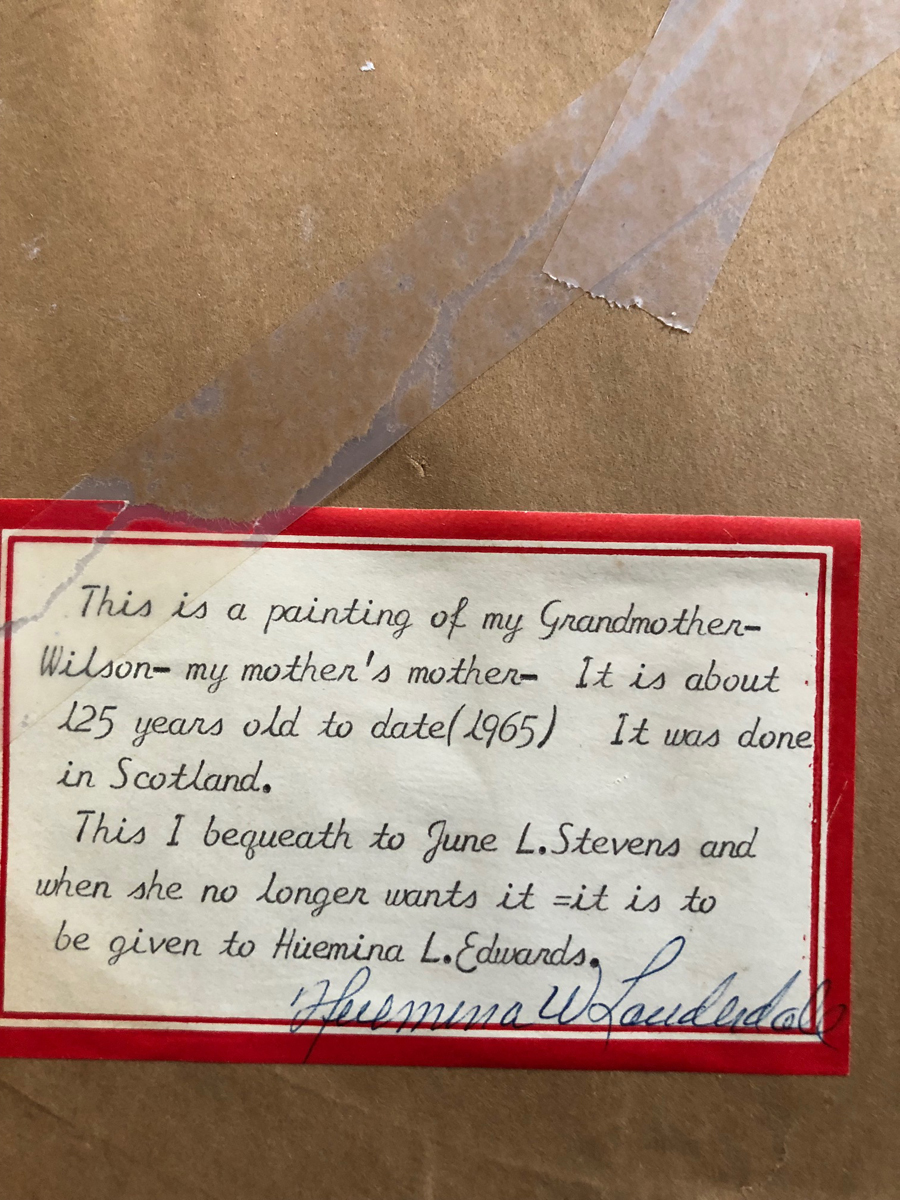 This is a painting of my Grandmother-
Wilson- my mother's mother- It is about
125 years old to date(1965) It was done
in Scotland.
This I bequeath to June L.Stevens and
when she no longer wants it =it is to
be given to Huemina L.Edwards.
Huemina W Lauderdale